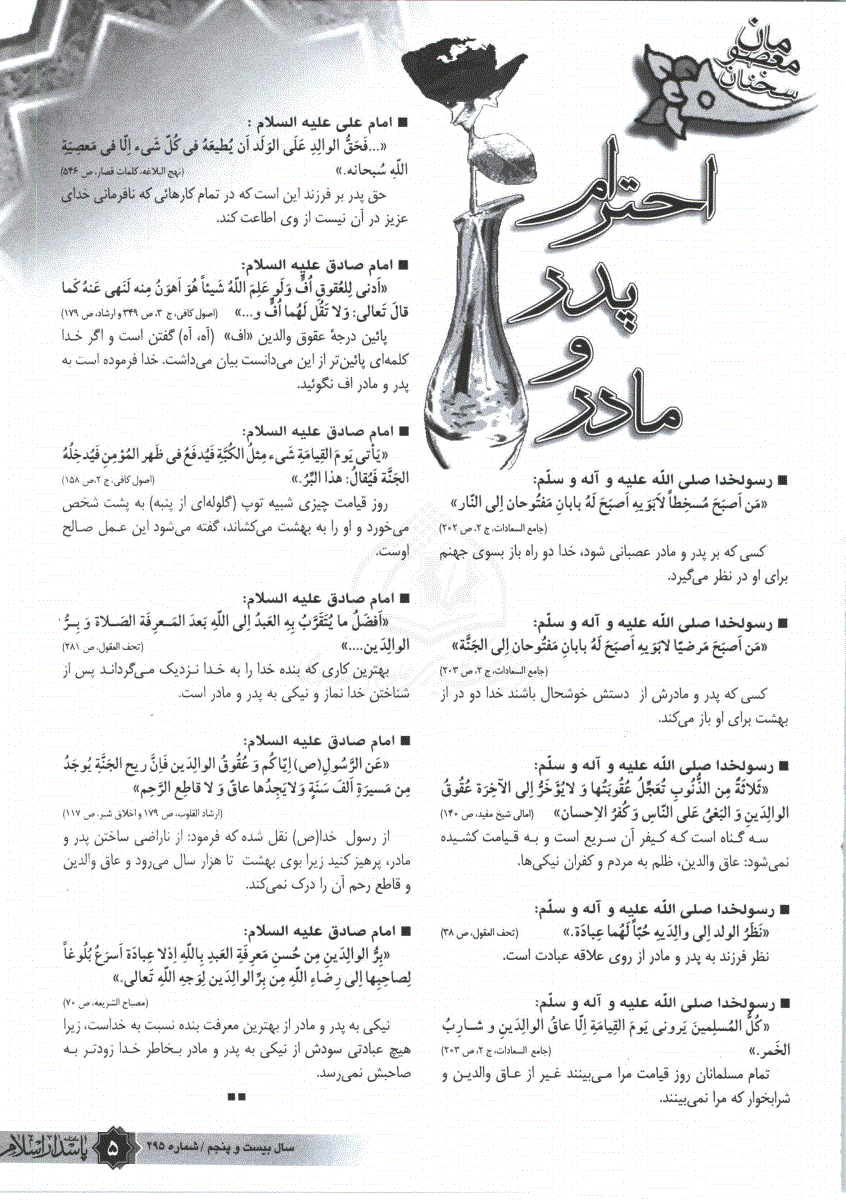 سخنان
معصومان
احترام
پدر
و
مادر
■ رسولخدا صلی الله علیه و آله و سلّم:
«مَن اَصبَحَ مُسخطاً لاَبَوَیهِ اَصبَحَ لَهُ بابانِ مَفتُوحان اِلی النّار»
(جامع السعادات، ج ۲، ص ۲۰۲)
کسی که بر پدر و مادر عصبانی شود، خدا دو راه باز بسوی جهنم
برای او در نظر می‌گیرد.
■ رسولخدا صلی الله علیه و آله و سلّم:
«مَن اَصبَحَ مَرضیّا لابَوَیهِ اَصبَحَ لَهُ بابانِ مَفتُوحان اِلی الجَنَّة»
(جامع السعادات، ج ۲، ص ۲۰۳)
کسی که پدر و مادرش از دستش خوشحال باشند خدا دو در از
بهشت برای او باز می‌کند.
■ رسولخدا صلی الله علیه و آله و سلّم:
«ثَلاثَةٌ مِن الذُّنُوبِ تُعَجَّلُ عُقُوبَتُها وَ لایُؤَخَّرُ اِلی الآخِرَة عُقُوقُ
الوالِدَینِ وَ البَغیُ عَلَی النّاسِ وَ کُفرُ الاِحسان» (امالی شیخ مفید، ص ۱۴۰)
سه گناه است که کیفر آن سریع است و به قیامت کشیده
نمی‌شود: عاق والدین، ظلم به مردم و کفران نیکی‌ها.
■ رسولخدا صلی الله علیه و آله و سلّم:
«نَظَرُ الولد اِلی والِدَیهِ حُبّاً لَهُما عِبادَة.» (تحف العقول، ص ۳۸)
نظر فرزند به پدر و مادر از روی علاقه عبادت است.
■ رسولخدا صلی الله علیه و آله و سلّم:
«کُلُّ المُسلِمینَ یَرونی یَومَ القِیامَةِ اِلّا عاقُ الوالِدَینِ و شاربُ
الخَمر.» (جامع السعادات، ج ۲، ص ۲۰۳)
تمام مسلمانان روز قیامت مرا می‌بینند غیر از عاق والدین و
شرابخوار که مرا نمی‌بینند.
■ امام علی علیه السلام :
«...فَحَقُّ الوالِدِ عَلَی الوَلَد اَن یُطیعَهُ فی کُلّ شَیء اِلّا فی مَعصِیَةِ
اللّهِ سُبحانه.» (نهج البلاغه، کلمات قصار، ص ۵۴۶)
حق پدر بر فرزند این است که در تمام کارهائی که نافرمانی خدای
عزیز در آن نیست از وی اطاعت کند.
■ امام صادق علیه السلام:
«اَدنی لِلعُقوقِ اُفٍّ وَلَو عَلِمَ اللّهُ شَیئاً هُوَ اَهوَنُ مِنه لَنَهی عَنهُ کَما
قالَ تَعالی: وَ لا تَقُل لَهُما اُفٍّ و...» (اصول کافی، ج ۳، ص ۳۴۹ و ارشاد، ص ۱۷۹)
پائین درجهٔ عقوق والدین «اف» (آه، آه) گفتن است و اگر خدا
کلمه‌ای پائین‌تر از این می‌دانست بیان می‌داشت. خدا فرموده است به
پدر و مادر اف نگوئید.
■ امام صادق علیه السلام:
«یَأتی یَومَ القِیامَةِ شَیء مِثلُ الکُبَّةِ فَیُدفَعُ فی ظَهر المُؤمِنِ فَیُدخِلُهُ
الجَنَّة فَیُقالُ: هذا البِرُّ.» (اصول کافی، ج ۲، ص ۱۵۸)
روز قیامت چیزی شبیه توپ (گلوله‌ای از پنبه) به پشت شخص
می‌خورد و او را به بهشت می‌کشاند، گفته می‌شود این عمل صالح
اوست.
■ امام صادق علیه السلام:
«اَفضَلُ ما یُتَقَرَّبُ بِهِ العَبدُ اِلی اللّهِ بَعدَ المَعرِفَة الصَلاة وَ بِرُّ
الوالِدَین....» (تحف العقول، ص ۲۸۱)
بهترین کاری که بنده خدا را به خدا نزدیک می‌گرداند پس از
شناختن خدا نماز و نیکی به پدر و مادر است.
■ امام صادق علیه السلام:
«عَن الرَّسُولِ(ص) اِیّاکُم وَ عُقُوقُ الوالِدَین فَاِنَّ ریح الجَنَّةِ یُوجَدُ
مِن مَسیرَةِ اَلفَ سَنَةٍ وَلایَجِدُها عاقّ وَ لا قاطِع الرَّحِم»
(ارشاد القلوب، ص ۱۷۹ و اخلاق شبر، ص ۱۱۷)
از رسول خدا(ص) نقل شده که فرمود: از ناراضی ساختن پدر و
مادر، پرهیز کنید زیرا بوی بهشت تا هزار سال می‌رود و عاق والدین
و قاطع رحم آن را درک نمی‌کند.
■ امام صادق علیه السلام:
«بِرُّ الوالِدَینِ مِن حُسنِ مَعرِفَةِ العَبدِ بِاللّهِ اِذلا عِبادَة اَسرَعُ بُلُوغاً
لِصاحِبِها اِلی رِضاءِ اللّهِ مِن بِرِّ الوالِدَینِ لِوَجهِ اللّهِ تَعالی.»
(مصباح الشریعه، ص ۷۰)
نیکی به پدر و مادر از بهترین معرفت بنده نسبت به خداست، زیرا
هیچ عبادتی سودش از نیکی به پدر و مادر بخاطر خدا زودتر به
صاحبش نمی‌رسد.
■■
سال بیست و پنجم / شماره ۲۹۵
۵
پاسدار اسلام